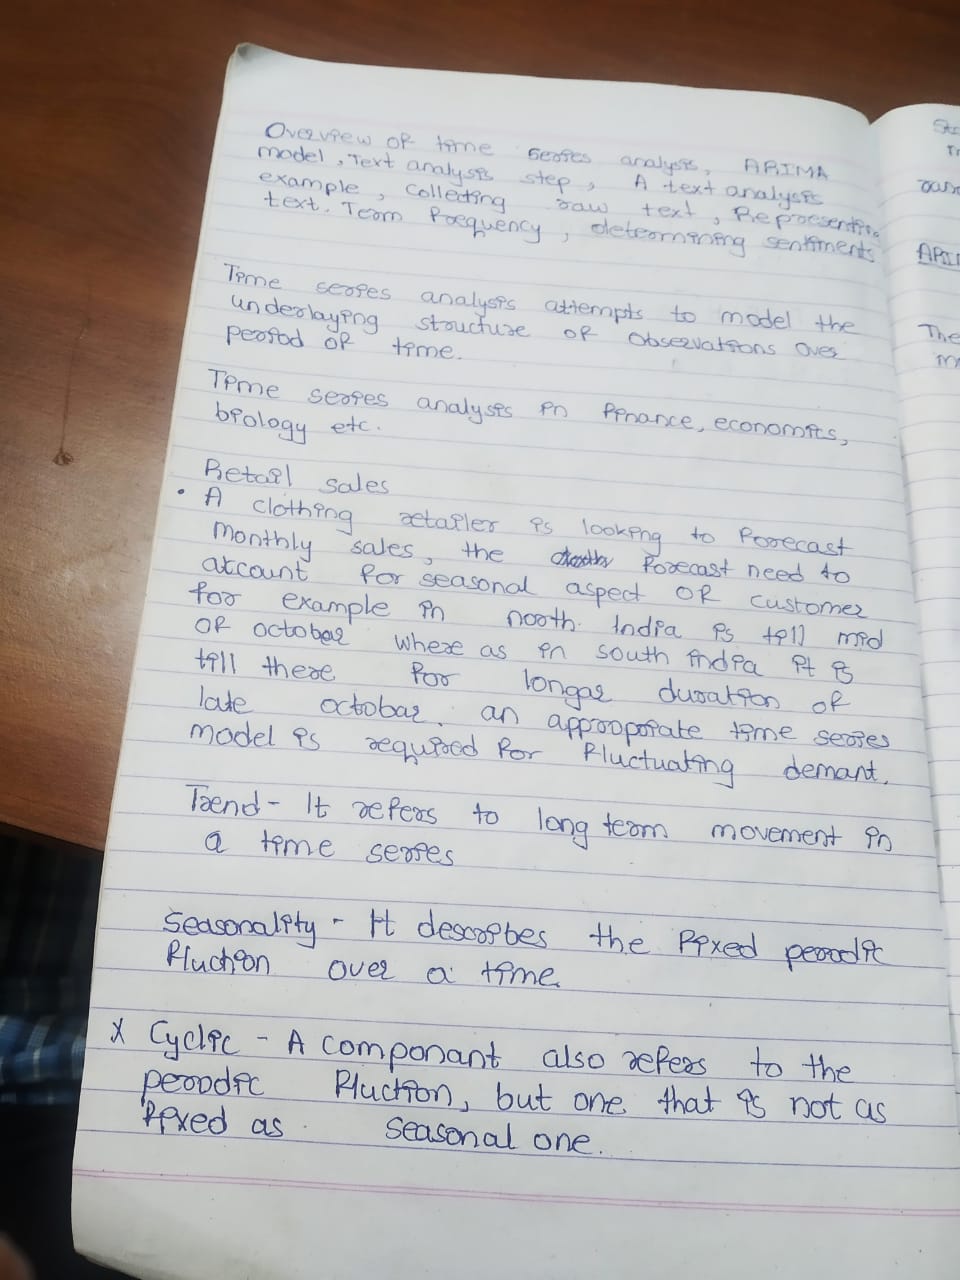 Overview of time series analysis, ARIMA
model, Text analysis step, A text analysis
example, Collecting raw text, Representing
text. Term Frequency, determining sentiments
Time series analysis attempts to model the
underlaying structure of observations over
period of time.
Time series analysis in Finance, economics,
biology etc.
Retail sales
• A clothing retailer is looking to Forecast
monthly sales, the forecast need to
account for seasonal aspect of customer
for example in north India is till mid
of octobar where as in south india it is
till there for longar duration of
late octobar. an approopriate time series
model is required for Fluctuating demant.
Trend - It refers to long term movement in
a time series
Seasonality - It describes the Fixed peroodic
Fluction over a time.
X Cyclic - A componant also refers to the
peroodic Fluction, but one that is not as
Fixed as seasonal one.
ARI
The